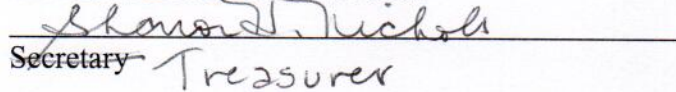 Sharon H. Nichols
Secretary Treasurer